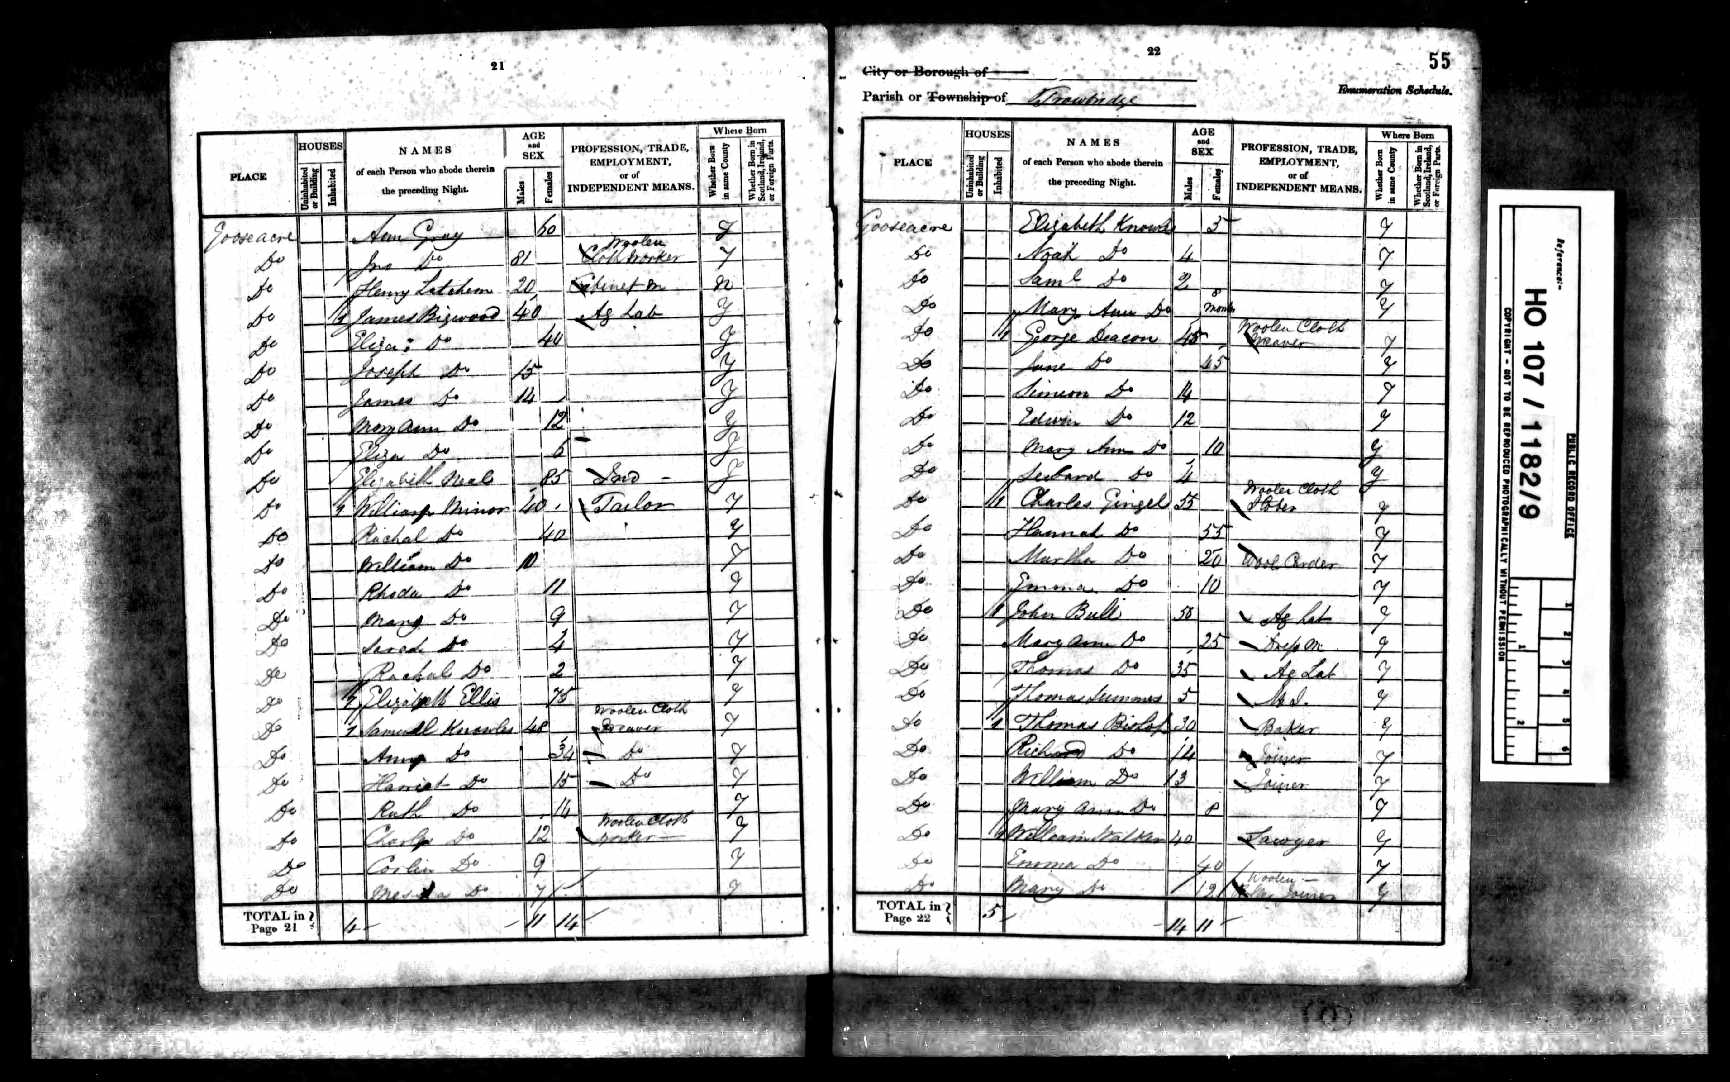 21
PLACE
HOUSES
Uninhabited or Building
Inhabited
NAMES
of each Person who abode therein
the preceding Night.
AGE
and
SEX
Males
Females
PROFESSION, TRADE,
EMPLOYMENT,
or of
INDEPENDENT MEANS.
Where Born
Whether Born in same County
Whether Born in Scotland, Ireland, or Foreign Parts.
Gooseacre Ann Gray 60 y
Do Jno Do 81 Woolen Cloth Worker y
Do Henry Latchem 20 Cabinet M n
Do 1 James Bigwood 40 Ag Lab y
Do Eliza: Do 40 y
Do Joseph Do 15 y
Do James Do 14 y
Do Mary Ann Do 12 y
Do Eliza Do 6 y
Do Elizabeth Neal 85 Ind y
Do 1 William Minor 40 Tailor y
Do Rachal Do 40 y
Do William Do 10 y
Do Rhoda Do 11 y
Do Mary Do 9 y
Do Sarah Do 4 y
Do Rachal Do 2 y
Do 1 Elizabeth Ellis 75 y
Do 1 Samuell Knowles 48 Woolen Cloth Weaver y
Do Ann Do 34 Do y
Do Harriet Do 15 Do y
Do Ruth Do 14 y
Do Charls Do 12 Woolen Cloth Worker y
Do Do 9 y
Do Do 7 y
TOTAL in Page 21 4 11 14
22
55
City or Borough of
Parish or Township of Trowbridge
Enumeration Schedule.
PLACE
HOUSES
Uninhabited or Building
Inhabited
NAMES
of each Person who abode therein
the preceding Night.
AGE
and
SEX
Males
Females
PROFESSION, TRADE,
EMPLOYMENT,
or of
INDEPENDENT MEANS.
Where Born
Whether Born in same County
Whether Born in Scotland, Ireland, or Foreign Parts.
Gooseacre Elizabeth Knowls 5 y
Do Noah Do 4 y
Do Saml Do 2 y
Do Mary Ann Do 8 Months y
Do 1 George Deacon 45 Woolen Cloth Weaver y
Do Jane Do 45 y
Do Simeon Do 14 y
Do Edwin Do 12 y
Do Mary Ann Do 10 y
Do Do 4 y
Do 1 Charles Gingel 55 Woolen Cloth y
Do Hannah Do 55 y
Do Martha Do 20 Wool Carder y
Do Emma Do 10 y
Do 1 John Bull 50 Ag Lab y
Do Mary Ann Do 25 Dress M y
Do Thomas Do 35 Ag Lab y
Do Thomas Summers 5 y
Do 1 Thomas Bishop 30 Baker y
Do Richard Do 14 Joiner y
Do William Do 13 Joiner y
Do Mary Ann Do 8 y
Do 1 William Walker 40 Sawyer y
Do Emma Do 40 y
Do Mary Do 12 Woolen y
TOTAL in Page 22 5 14 11
Reference:-
HO 107 / 1182/9
PUBLIC RECORD OFFICE
COPYRIGHT - NOT TO BE REPRODUCED PHOTOGRAPHICALLY WITHOUT PERMISSION
1
2
3
4
5
6
1
2